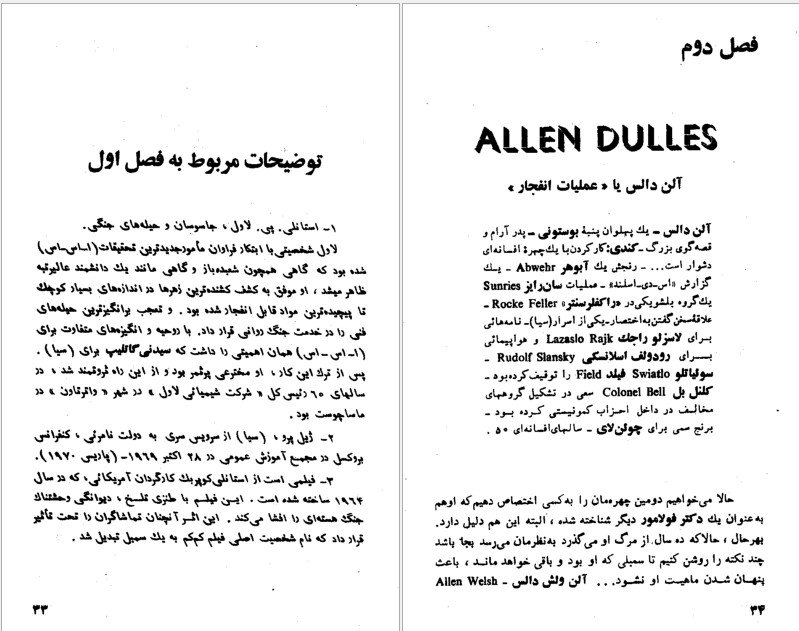 توضیحات مربوط به فصل اول
۱- استانلی. پی. لاول ، جاسوسان و حیله‌های جنگی.
لاول شخصیتی با ابتکار فراوان مأمورجدیدترین تحقیقات (ا-اس-اس)
شده بود که گاهی همچون شعبده‌باز و گاهی مانند یك دانشمند عالیرتبه
ظاهر میشد ، او موفق به کشف کشنده‌ترین زهرها در اندازه‌های بسیار کوچك
تا پیچیده‌ترین مواد قابل انفجار شده بود . و تعجب برانگیزترین حیله‌های
فنی را در خدمت جنگ روانی قرار داد. با روحیه و انگیزه‌ای متفاوت برای
(ا-اس-اس) همان اهمیتی را داشت که سیدنی‌گاتلیب برای (سیا) .
پس از ترك این کار ، او مخترعی پرثمر بود و از این راه ثروتمند شد ، در
سالهای ۶۵ رئیس کل « شرکت شیمیائی لاول » در شهر « واترتاون » در
ماساچوست بود .
۲- ژیل پرو ، (سیا) از سرویس سری به دولت نامرئی ، کنفرانس
بروکسل در مجمع آموزش عمومی در ۲۸ اکتبر ۱۹۶۹- (پاریس ۱۹۷۰).
۳- فیلمی است از استانلی‌کوبریك کارگردان آمریکائی، که در سال
۱۹۶۴ ساخته شده است . این فیلم با طنزی تلخ ، دیوانگی وحشتناك
جنگ هسته‌ای را افشا می‌کند . این اثر آنچنان تماشاگران را تحت تأثیر
قرار داد که نام شخصیت اصلی فیلم کم‌کم به یك سمبل تبدیل شد .
۳۳
فصل دوم
ALLEN DULLES
آلن دالس یا « عملیات انفجار »
آلن دالس – یك پهلوان پنبهٔ بوستونی – پدر آرام و
قصه‌گوی بزرگ – کندی: کارکردن با یك چهرهٔ افسانه‌ای
دشوار است... – رنجش یك آبوهر Abwehr – یك
گزارش «اس-دی-اسلند» – عملیات سان‌رایز Sunries
یك‌گروه بلشویکی‌در «راکفلرسنتر» Rocke Feller –
علاقهٔ‌سخن‌گفتن‌به‌اختصار-یکی‌از اسرار(سیا)- نامه‌هائی
برای لاسزلو راجك Lazaslo Rajk و هواپیمائی
برای رودولف اسلانسکی Rudolf Slansky –
سوئیاتلو Swiatlo فیلد Field را توقیف‌کرده‌بود –
کلنل بل Colonel Bell سعی در تشکیل گروههای
مخالف در داخل احزاب کمونیستی کرده بود –
برنج سمی برای چوئن‌لای – سالهای‌افسانه‌ای ۵۰ .
حالا می‌خواهیم دومین چهره‌مان را به‌کسی اختصاص دهیم‌که اوهم
به‌عنوان یك دکتر فولامور دیگر شناخته شده ، البته این هم دلیل دارد.
بهرحال ، حالاکه ده سال از مرگ او می‌گذرد به‌نظرمان می‌رسد بجا باشد
چند نکته را روشن کنیم تا سمبلی که او بود و باقی خواهد ماند ، باعث
پنهان شدن ماهیت او نشود... آلن ولش دالس – Allen Welsh
۳۴